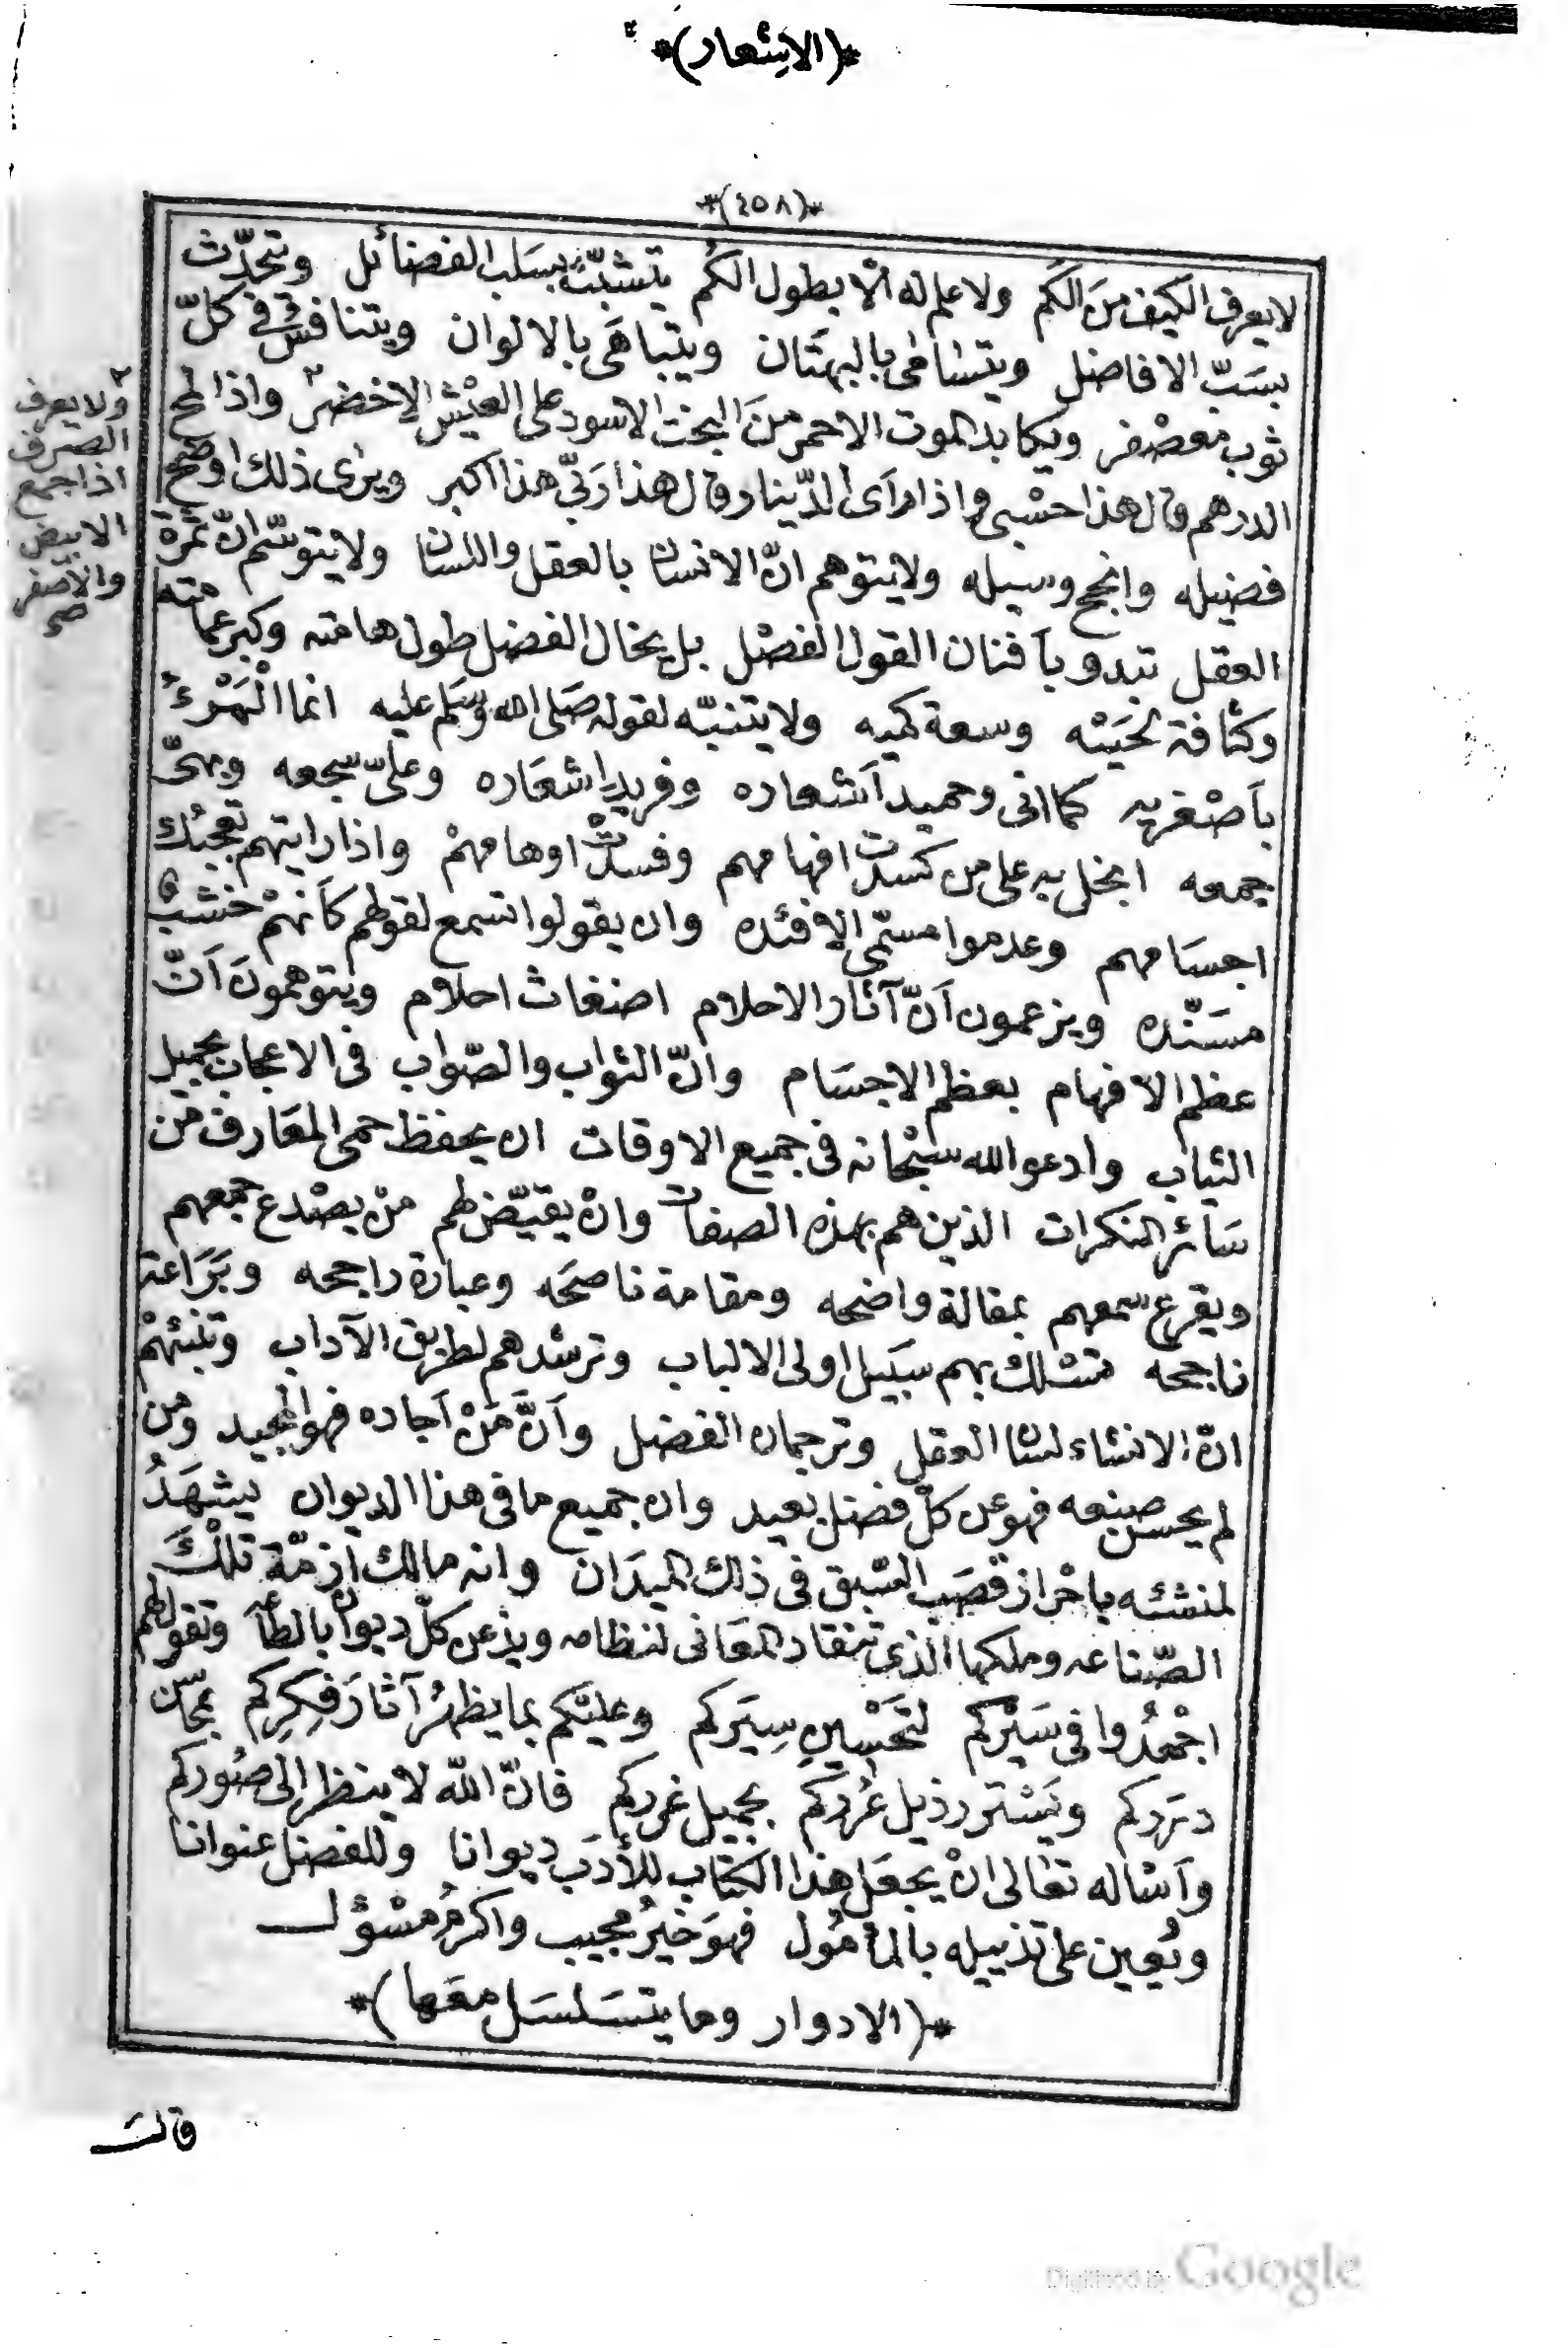 *(الاشعار)*
*(٤٥٨)*
لا يعرف الكيف منَ الكَم ولا علم له الّا بطول الكُم يتشبّث بسَلب الفضائل ويتحدّث
بسَبّ الافاضل ويتسامى بالبهتَان ويتباهَى بالالوان ويتنافسُ في كلّ
ثوب معصْفر ويكابد الموت الاحمر منَ البخت الاسود على العيْش الاخضر ٢ واذا لمح
الدرهم قال هذا حسْبى واذا رآى الدّينار قال هذا رَبّي هذا اكبر ويرٰى ذلك اوضح
فضيله وانجح وسيله ولا يتوهم انّ الانسان بالعقل واللسان ولا يتوسّم انّ ثمرة
العقل تبدو بآفنان القول الفصْل بل يخال الفضل طول هامته وكبر عمامته
وكثافة لحيَته وسعة كميه ولا يتنبّه لقوله صَلى الله وسَلم عليه انما الْمَرْءُ
باَصْغريه كما انى وحميد اَشعاره وفريد اِشعَاره وعلىّ سجعه وبهىّ
جمعه ابخل به على من كسدت افهامهم وفسدتْ اوهامهمْ واذا رايتهم تعجبُك
اجسَامهم وعدموا مسمّى الافئده وان يقولوا تسمع لقولهم كاَنهمْ خشبُ
مسَنّده ويزعمون اَنّ آثار الاحلام اضغاث احلام ويتوهمونَ اَنّ
عظم الافهام بعظم الاجسَام وانّ الثواب والصّواب فى الاعجاب بجميل
الثياب وادعو الله سبْحانه فى جميع الاوقات ان يحفظ حمى المعَارف من
سَائر النكرات الذين هم بهذه الصفات وانْ يقيّض لهم منْ يصْدع جمعهم
ويقرع سمعهم بمقالة واضحه ومقامة ناصحَه وعبارة راجحه وبَرَاعة
ناجحه تسلك بهم سبَيل اولى الالباب وترشدهم لطريق الآداب وتنبئهمْ
انّ الانشاء لسان العقل وترجمان الفضل واَنَّ مَنْ اَجاده فهو المجيد ومن
لم يحسن صنعه فهو عن كلّ فضل بعيد وان جميع ما فى هذا الديوان يشهَدُ
لمنشئه باحْراز قصَب السّبق فى ذلك الميدَان وانه مالك ازمّة تلْكَ
الصّناعه ومليكها الّذى تنقاد المعَانى لنظامه ويذعن كلّ ديوان بالطاعه وتقول لهم
اجْهَدُوا فى سَيْركم لتحَسْينِ سِيَركم وعليْكم بما يظهرُ آثارَ فِكِرِكم بمحاسن
درَركم ويَسْتر رذيل عُرَركم بجميل غرركم فانّ اللّٰه لا ينظر الى صُوركم
واَسْاله تعَالى انْ يجعَل هذا الكتاب للأدَب ديوانا وللفضل عنوانا
ويُعين على تذييله بالمأمُول فهوَ خيرُ مجيب واكرمُ مسْؤل
*(الادوار وما يتسَلسَل معَها)*
قال
٢
ولا يعرف
الصرف
اذا جمع
الابيض
والأصفر
صح
Digitized by Google